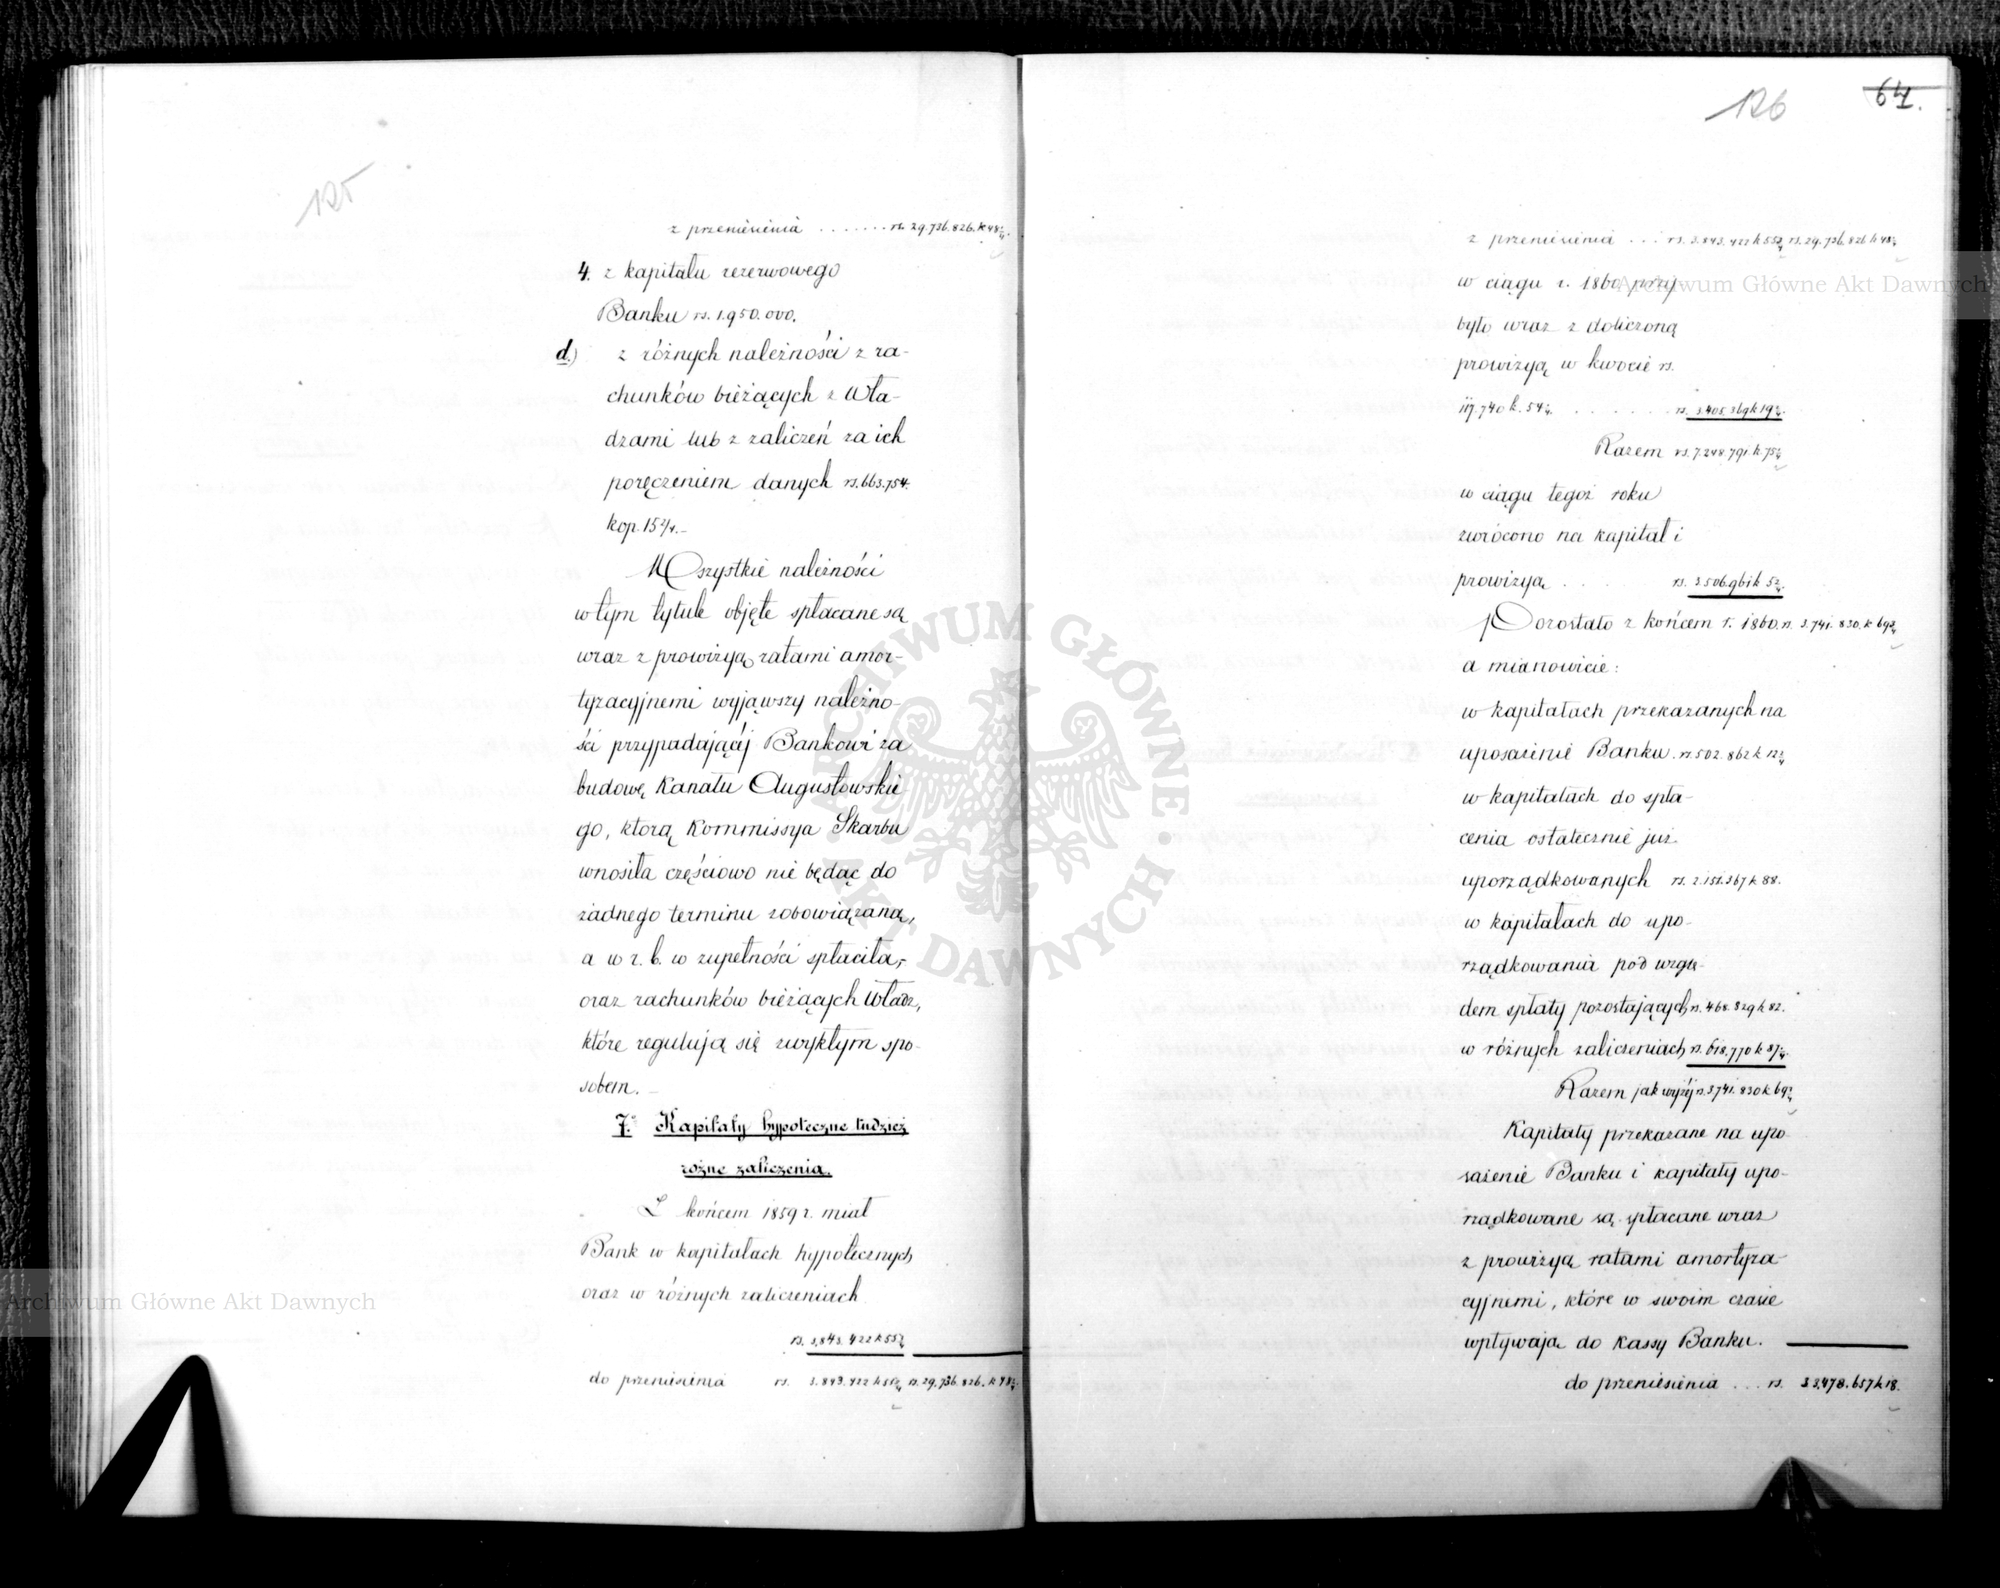 125
z przeniesienia . . . . . . . rs. 29.736.826. k 48 2/4.
4. z kapitału rezerwowego
Banku rs. 1.950.000.
d.) z różnych należności z ra-
chunków bieżących z Wła-
dzami lub z zaliczeń za ich
poręczeniem danych rs. 663.754.
kop. 15 2/4. –
Wszystkie należności
w tym tytule objęte spłacane są
wraz z prowizyą ratami amor-
tyzacyjnemi wyjąwszy należno-
ści przypadającéj Bankowi za
budowę Kanału Augustowskie
go, którą Kommissya Skarbu
wnosiła częściowo nie będąc do
żadnego terminu zobowiązaną,
a w r. b. w zupełności spłaciła, –
oraz rachunków bieżących Władz,
które regulują się zwykłym spo-
sobem. –
7.° Kapitały hypoteczne tudzież
różne zaliczenia.
Z końcem 1859 r. miał
Bank w kapitałach hypotecznych
oraz w różnych zaliczeniach
rs. 3.843.422 k 55 2/4
do przeniesienia rs. 3.843.422 k 55 2/4 rs. 29.736.826. k 48 2/4.
126 64.
z przeniesienia . . . rs. 3.843.422 k 55 2/4 rs. 29.736.826 k 48 2/4
w ciągu r. 1860 przy-
było wraz z doliczoną
prowizyą w kwocie rs.
117.740 k. 54 2/4 . . . . . . . rs. 3.405.369 k 19 3/4.
Razem rs. 7.248.791 k. 75 1/4
w ciągu tegoż roku
zwrócono na kapitał i
prowizyą . . . . . rs. 3.506.961 k 5 2/4.
Pozostało z końcem r. 1860. rs. 3.741.830. k 69 3/4
a mianowicie:
w kapitałach przekazanych na
uposażenie Banku . rs. 502.862 k 12 2/4
w kapitałach do spła-
cenia ostatecznie już
uporządkowanych rs. 2.151.367 k 88.
w kapitałach do upo-
rządkowania pod wzglę-
dem spłaty pozostających rs. 468.829 k 82.
w różnych zaliczeniach rs. 618.770 k 87 1/4.
Razem jak wyżéj rs. 3741.830 k 69 3/4
Kapitały przekazane na upo-
sażenie Banku i kapitały upo-
rządkowane są spłacane wraz
z prowizyą ratami amortyza-
cyjnemi, które w swoim czasie
wpływają do Kassy Banku.
do przeniesienia . . . rs. 33.478.657 k 18.
ARCHIWUM GŁÓWNE
AKT DAWNYCH
Archiwum Główne Akt Dawnych
Archiwum Główne Akt Dawnych